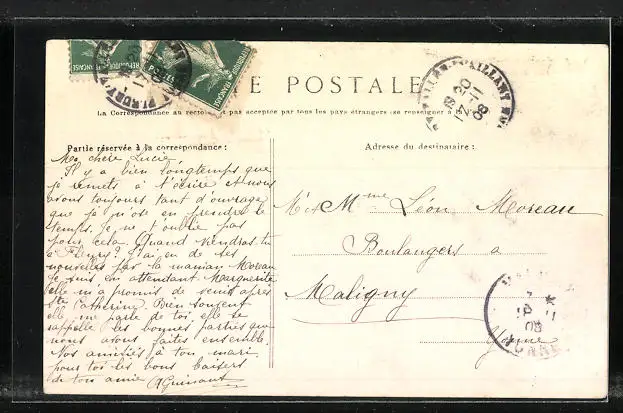 CARTE POSTALE
La Correspondance au recto n'est pas acceptée par tous les pays étrangers (se renseigner à la
Partie réservée à la correspondance :
Adresse du destinataire :
Ma chère Lucie
Il y a bien longtemps que
je remets à t'écrire et nous
avons toujours tant d'ouvrage
que je n'ose en prendre le
temps. Je ne t'oublie pas
pour cela. Quand viendras-tu
à Fleury? J'ai eu de tes
nouvelles par la maman Moreau
Je suis en attendant Marguerite
elle m'a promis de venir après
Ste Catherine. Bien souvent
elle me parle de toi, elle se
rappelle les bonnes parties que
nous avons faites ensemble.
Nos amitiés à ton mari
pour toi les bons baisers
de ton amie
M. et Mme Léon Moreau
Boulangers à
Maligny
Yonne
POSTES
FRANÇAISE
FLEURY
19 20
17 - 11
08